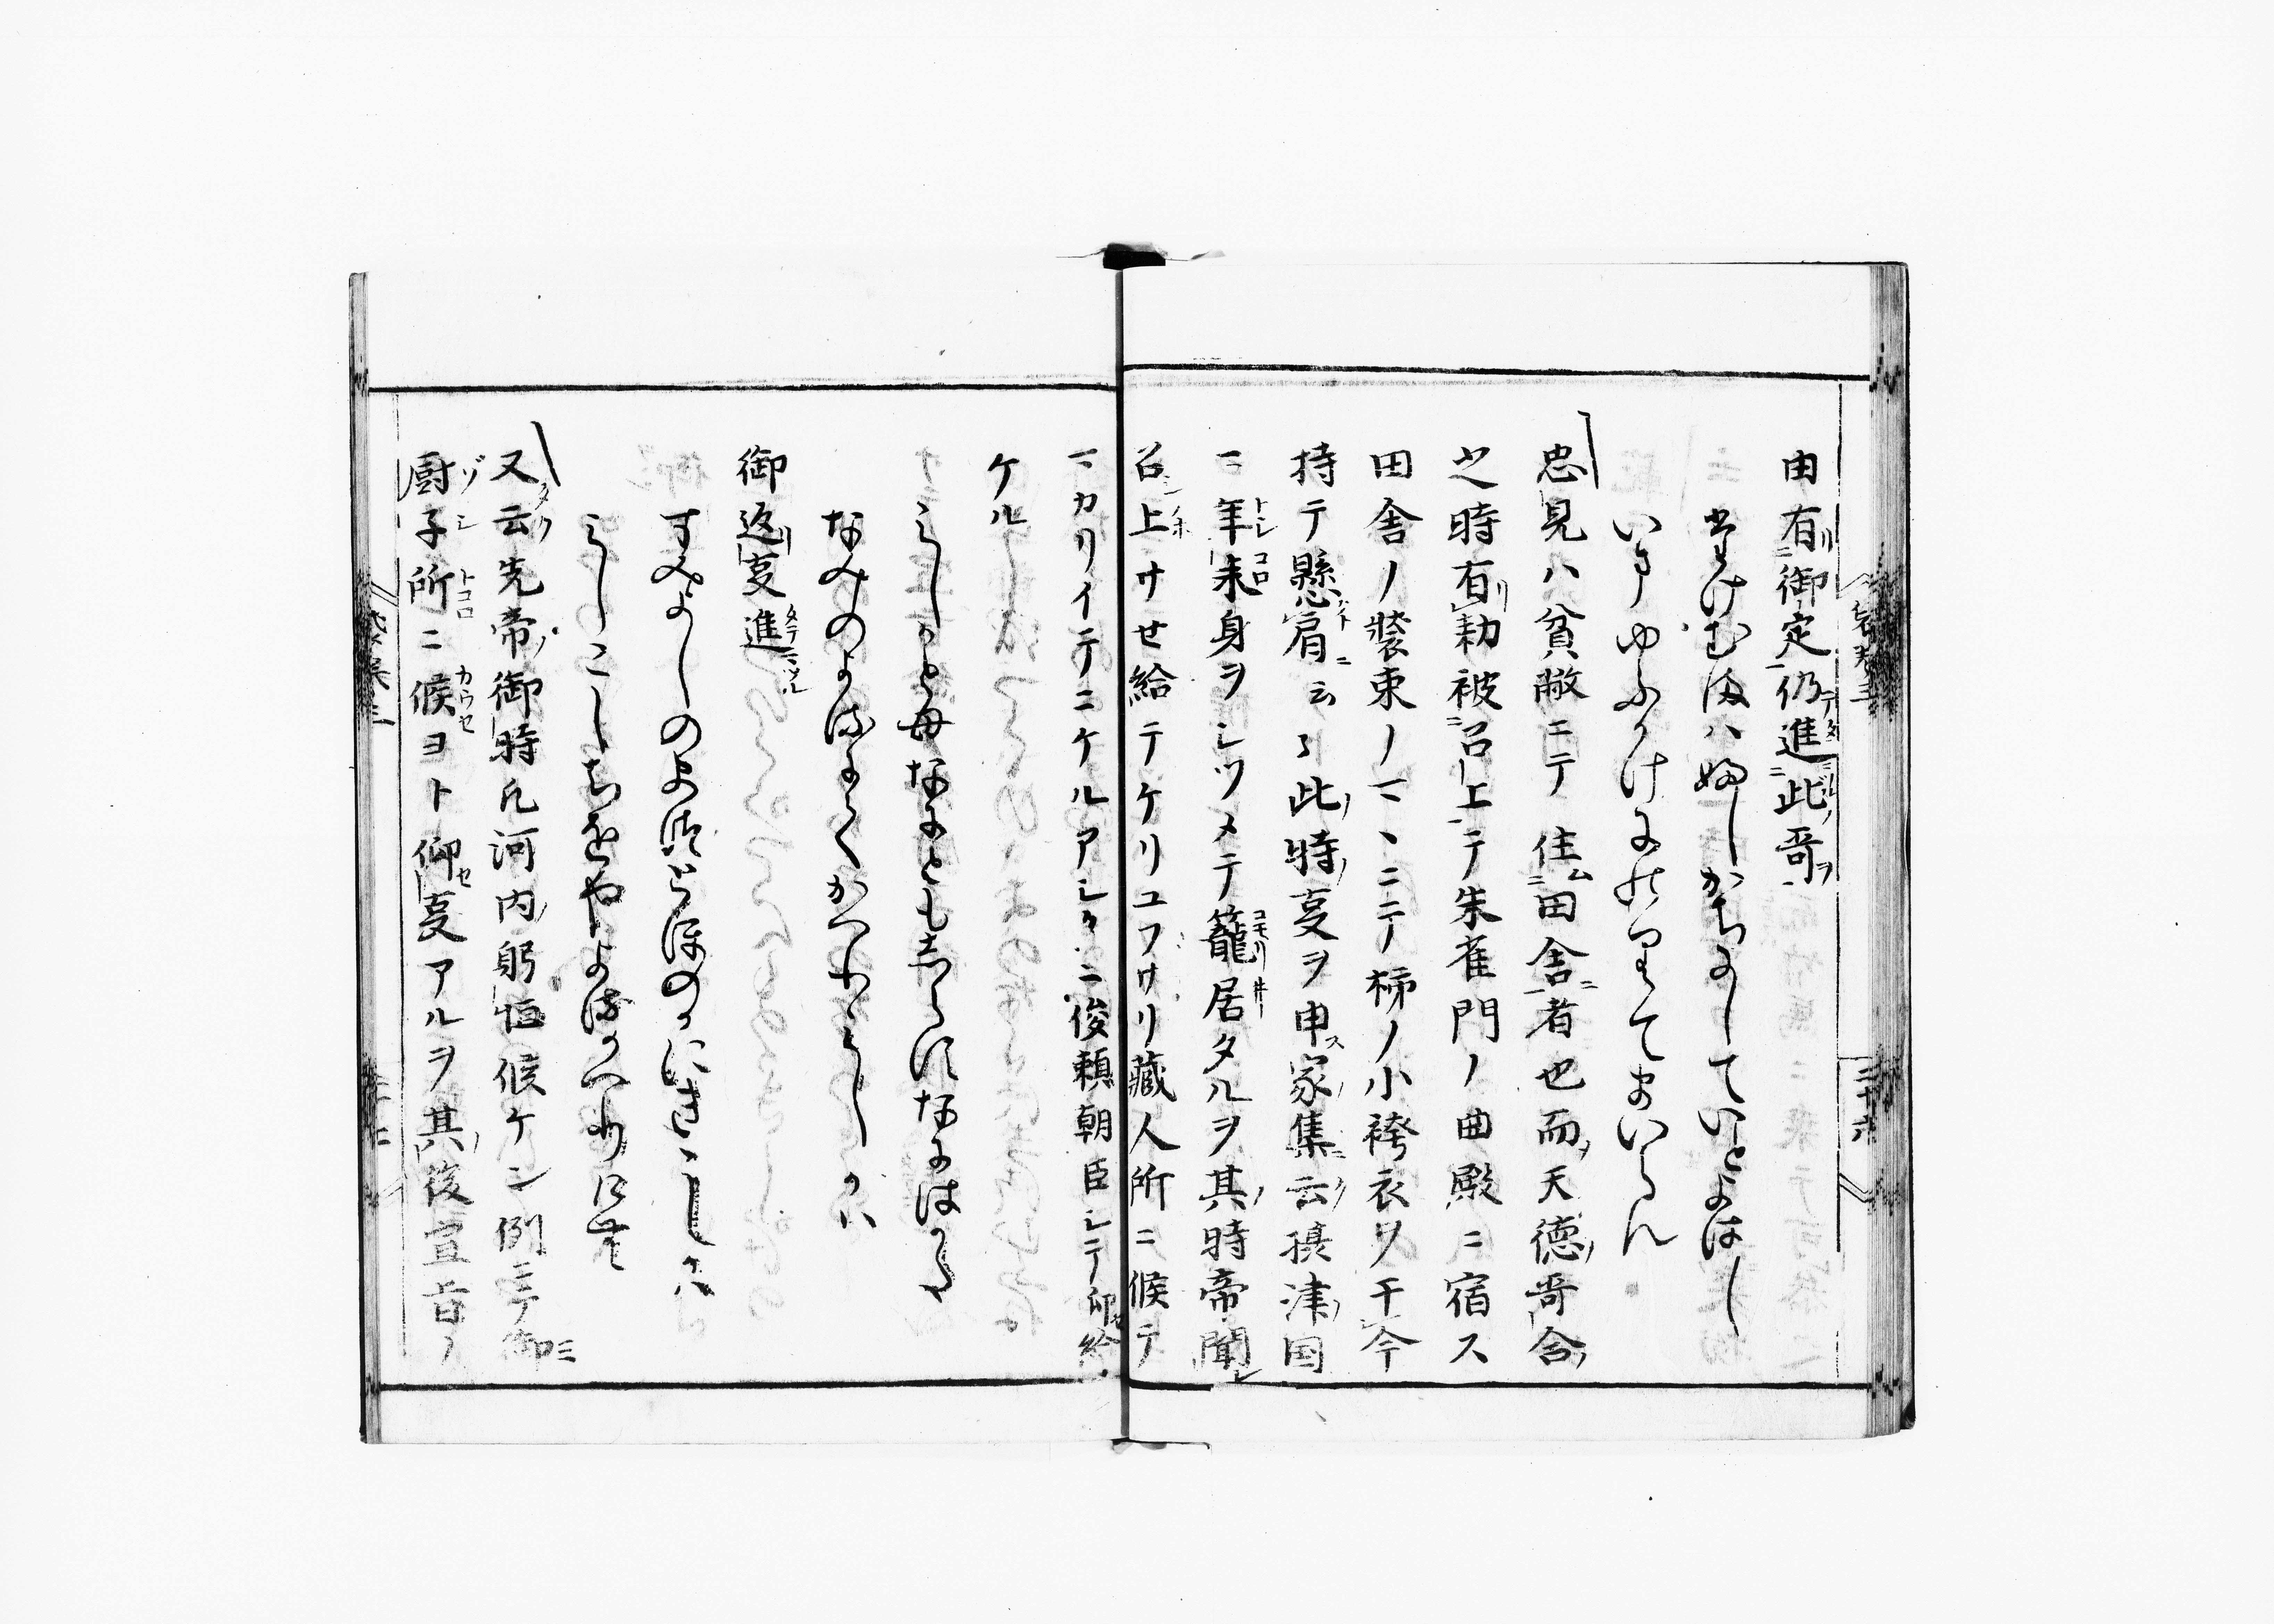 由有御定仍進此哥
たけむまハふしかちにしていとよはし
いまゆふかけにのりてまいらん
忠見ハ貧敝ニテ住田舎者也而天徳哥合
之時有勅被召上テ朱雀門ノ曲殿ニ宿ス
田舎ノ装束ノママニテ柿ノ小袴衣ヲ于今
持テ懸肩云々此時㕝ヲ申家集云摂津国
ニ年来身ヲシヅメテ籠居タルヲ其時帝聞
召上サセ給テケリユフサリ蔵人所ニ候テ
マカリイテニケルアシタニ俊頼朝臣シテ仰給
ケル
としことなにともしらすなにはかた
なみのよるよるかへりこしかハ
御返㕝進
すみよしのまつとほのかにきゝしかハ
みちこししほやよるかへりけむ
又云先帝御時凡河内躬恒候ケン例ニテ御
厨子所ニ候ヨト仰㕝アルヲ其後宣旨ノ